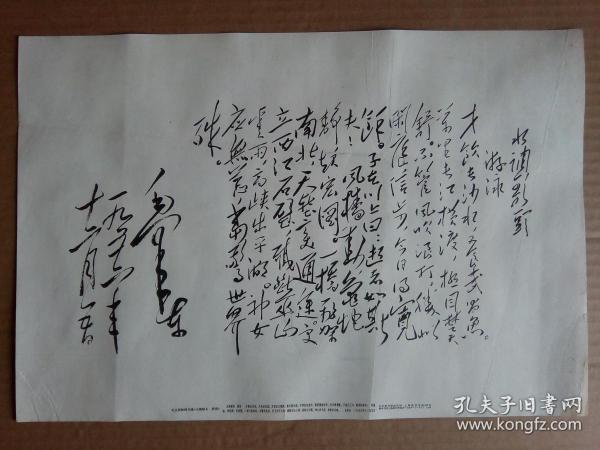 水调歌头
游泳
才饮长沙水，又食武昌鱼。
万里长江横渡，极目楚天
舒。不管风吹浪打，胜似
闲庭信步，今日得宽
馀。子在川上曰：逝者如斯
夫！风樯动，龟蛇
静，起宏图。一桥飞架
南北，天堑变通途。更
立西江石壁，截断巫山
云雨，高峡出平湖。神女
应无恙，当惊世界
殊。
毛泽东
一九五六年
十二月一日
孔夫子旧书网
www.kongfz.com